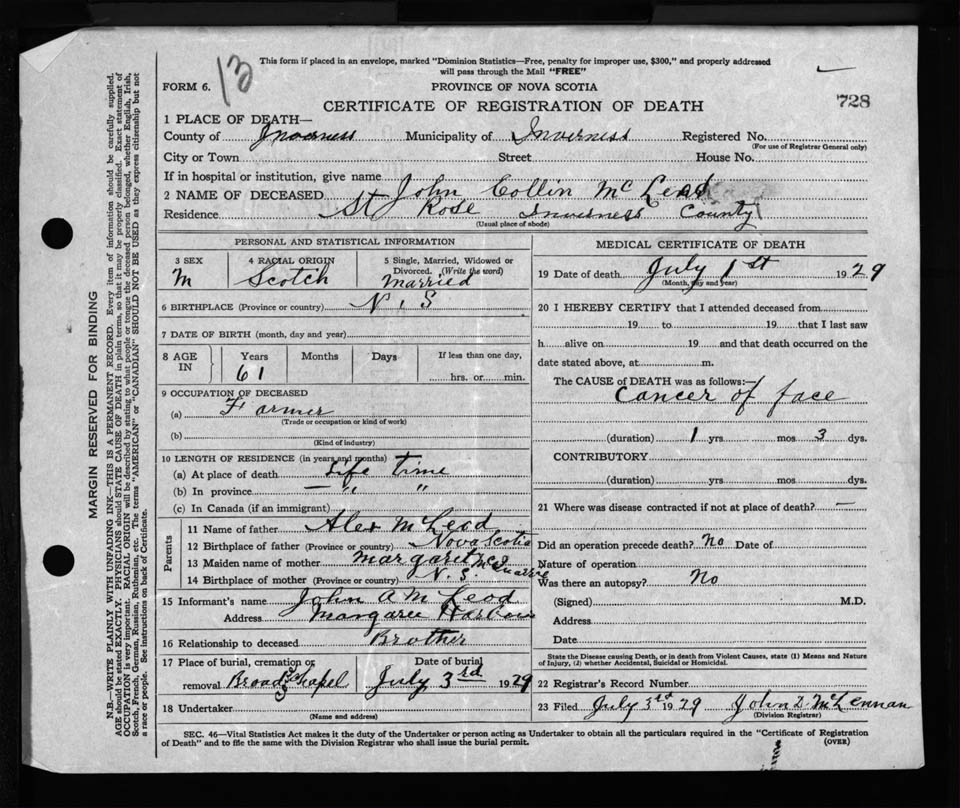 This form if placed in an envelope, marked "Dominion Statistics—Free, penalty for improper use, $300," and properly addressed
will pass through the Mail "FREE"
13
FORM 6.
PROVINCE OF NOVA SCOTIA
CERTIFICATE OF REGISTRATION OF DEATH
728
1 PLACE OF DEATH—
County of Inverness Municipality of Inverness Registered No.
(For use of Registrar General only)
City or Town Street House No.
If in hospital or institution, give name
2 NAME OF DECEASED John Collin Mc Leod
Residence St Rose Inverness County
(Usual place of abode)
PERSONAL AND STATISTICAL INFORMATION
3 SEX 4 RACIAL ORIGIN 5 Single, Married, Widowed or
Divorced. (Write the word)
M Scotch Married
6 BIRTHPLACE (Province or country) N. S
7 DATE OF BIRTH (month, day and year)
8 AGE IN Years Months Days If less than one day,
61 hrs. or min.
9 OCCUPATION OF DECEASED
(a) Farmer
(Trade or occupation or kind of work)
(b)
(Kind of industry)
10 LENGTH OF RESIDENCE (in years and months)
(a) At place of death Life time
(b) In province — " "
(c) In Canada (if an immigrant)
Parents
11 Name of father Alex McLeod
12 Birthplace of father (Province or country) Nova Scotia
13 Maiden name of mother Margaret
14 Birthplace of mother (Province or country) N. S.
15 Informant's name John A McLeod
Address Margaree Harbour
16 Relationship to deceased Brother
17 Place of burial, cremation or Date of burial
removal Broad Chapel July 3rd 1929
18 Undertaker
(Name and address)
MEDICAL CERTIFICATE OF DEATH
19 Date of death July 1st 1929
(Month, day and year)
20 I HEREBY CERTIFY that I attended deceased from
19 to 19 that I last saw
h alive on 19 and that death occurred on the
date stated above, at m.
The CAUSE OF DEATH was as follows:—
Cancer of face
(duration) 1 yrs. mos 3 dys.
CONTRIBUTORY
(duration) yrs. mos. dys.
21 Where was disease contracted if not at place of death? —
Did an operation precede death? No Date of
Nature of operation
Was there an autopsy? No
(Signed) M.D.
Address
Date
State the Disease causing Death, or in death from Violent Causes, state (1) Means and Nature
of Injury, (2) whether Accidental, Suicidal or Homicidal.
22 Registrar's Record Number
23 Filed July 3rd 1929 John D McLennan
(Division Registrar)
SEC. 46—Vital Statistics Act makes it the duty of the Undertaker or person acting as Undertaker to obtain all the particulars required in the "Certificate of Registration
of Death" and to file the same with the Division Registrar who shall issue the burial permit. (OVER)
MARGIN RESERVED FOR BINDING
N.B.—WRITE PLAINLY WITH UNFADING INK—THIS IS A PERMANENT RECORD. Every item of information should be carefully supplied.
AGE should be stated EXACTLY. PHYSICIANS should STATE CAUSE OF DEATH in plain terms, so that it may be properly classified. Exact statement of
OCCUPATION is very important. RACIAL ORIGIN will be described by stating to what people or tongue the deceased person belonged, whether English, Irish,
Scotch, French, German, Russian, Ruthenian, etc. The terms "AMERICAN" or "CANADIAN" SHOULD NOT BE USED as they express citizenship but not
a race or people. See instructions on back of Certificate.